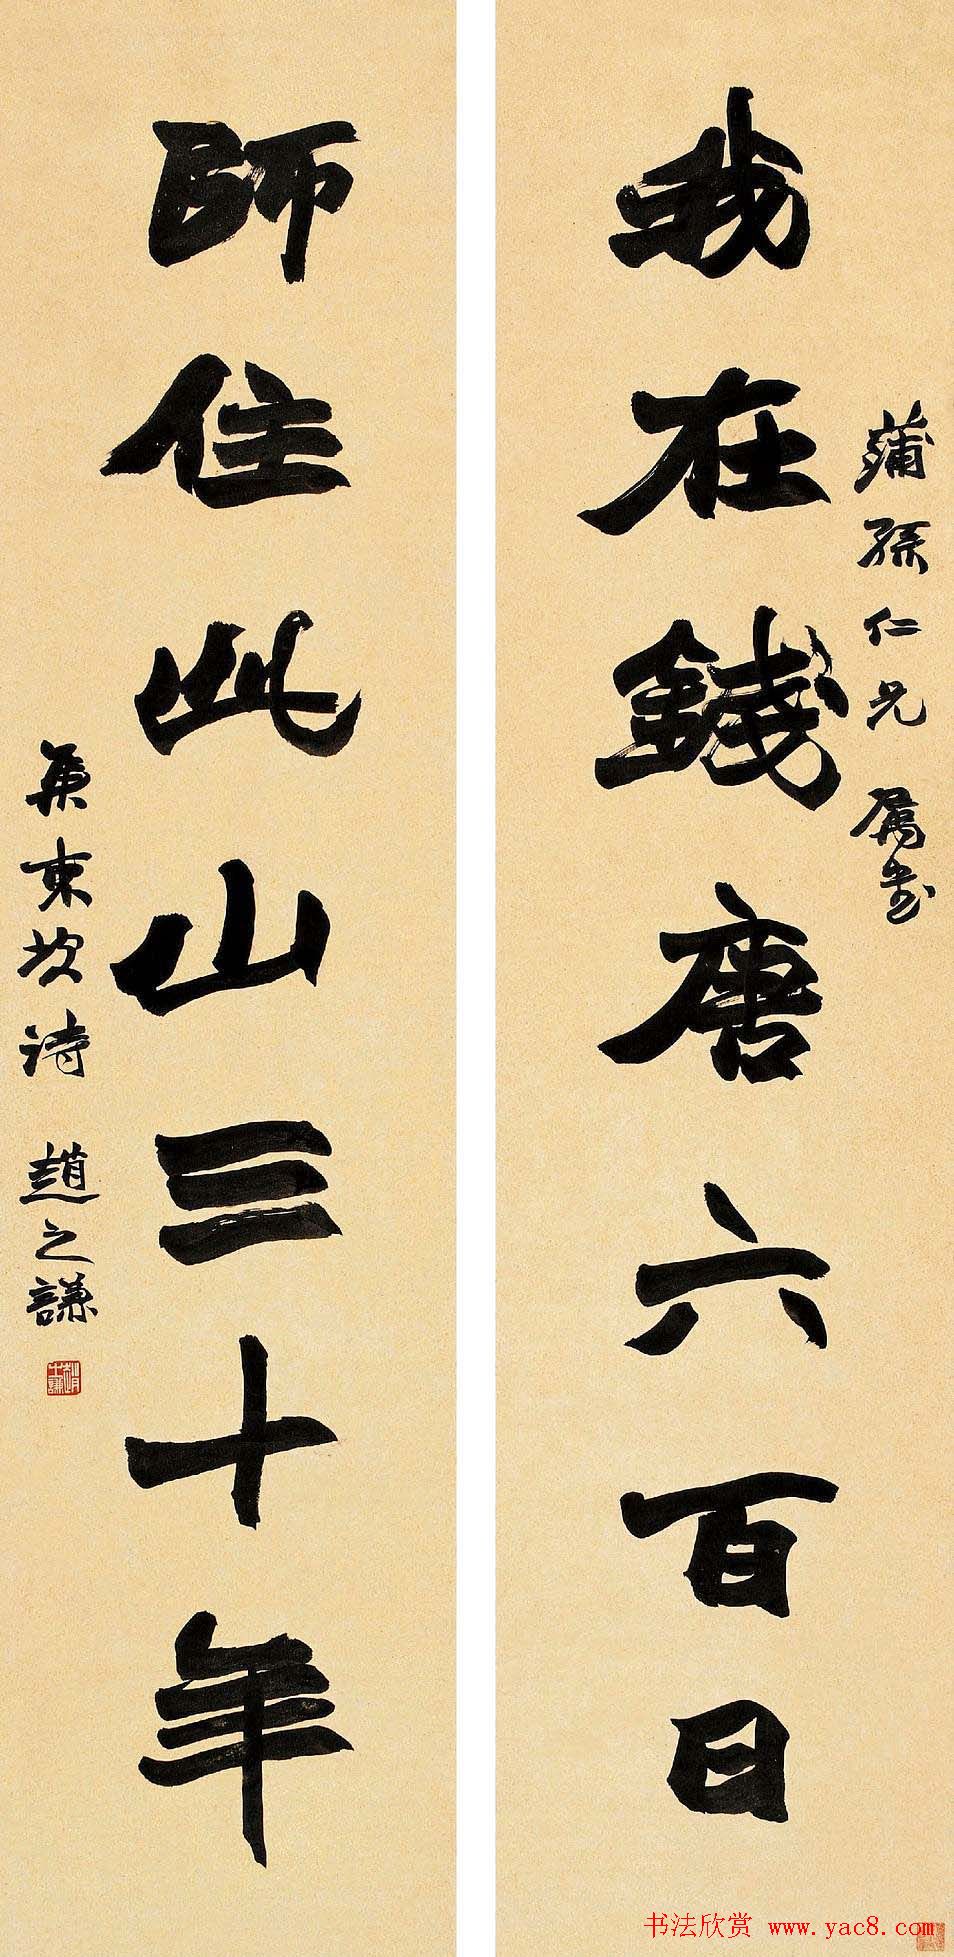 蒲孫仁兄 屬書
我在錢唐六百日
師住此山三十年
集東坡詩 趙之謙
書法欣赏 www.yac8.com